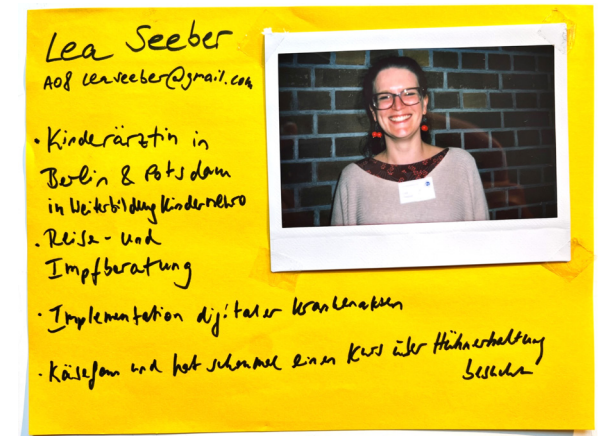 Lea Seeber
A08 leaseeber@gmail.com
• Kinderärztin in
Berlin & Potsdam
in Weiterbildung Kinderneuro
• Reise- und
Impfberatung
• Implementation digitaler Krankenakten
• Käsefan und hat schonmal einen Kurs über Hühnerhaltung
besucht